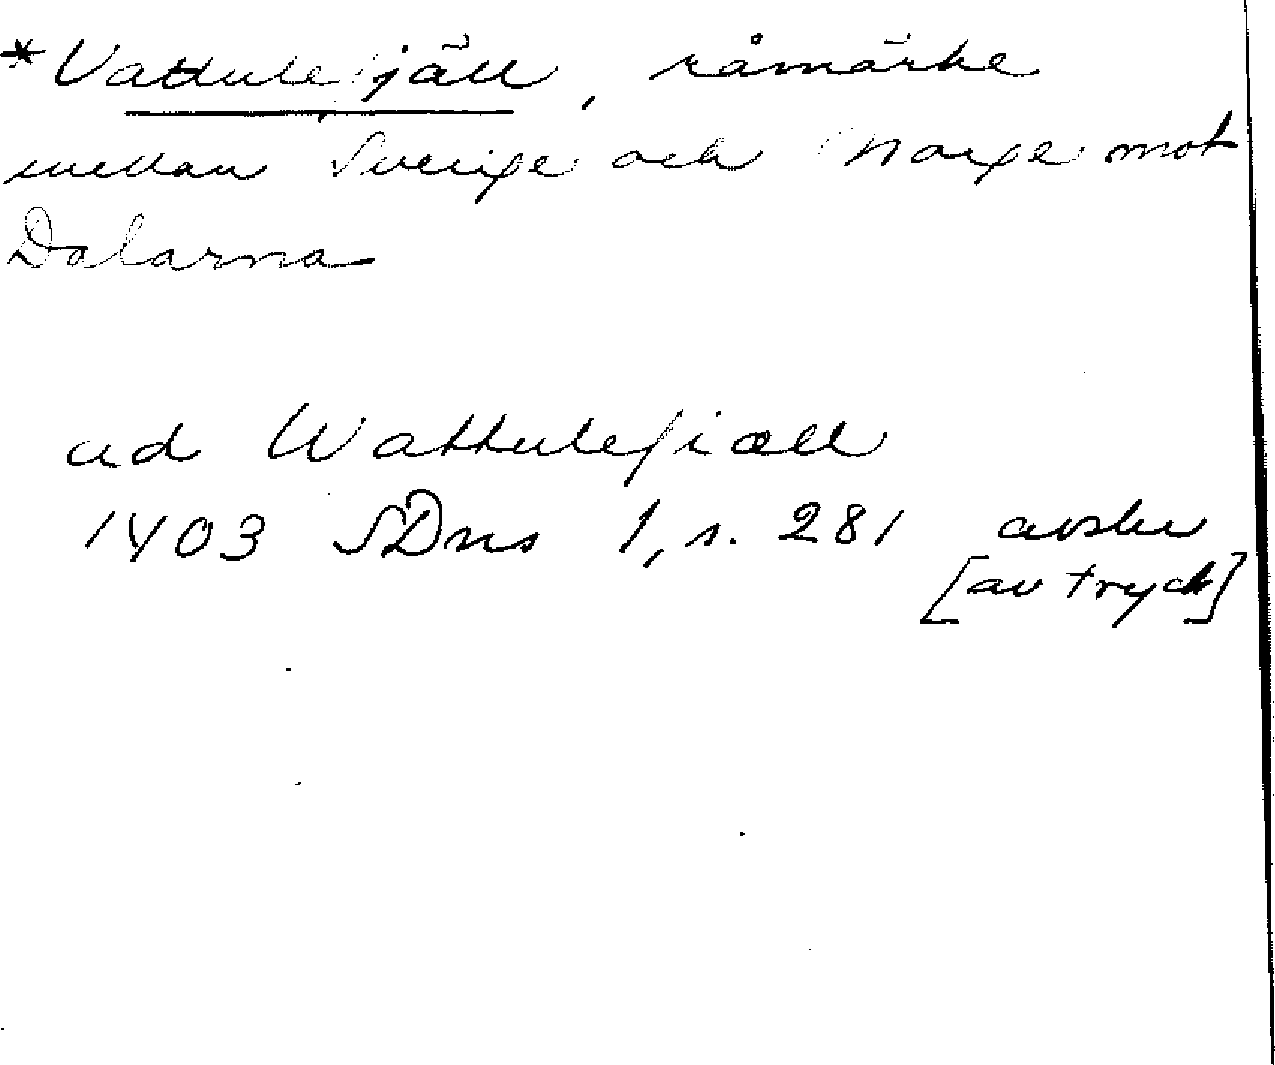 *Vattulefjäll, råmärke
mellan Sverige och Norge mot
Dalarna
ud Wattulefiæll
1403 SDns 1, s. 281 avskr
[av tryck]